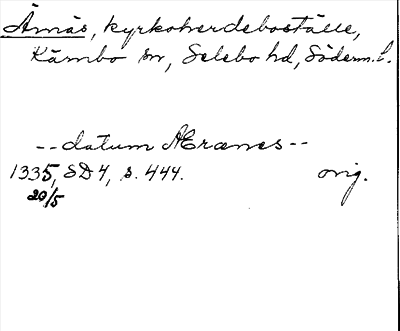 Ärnäs, kyrkoherdeboställe,
Kärnbo sn, Selebo hd, Söderm.l.
--datum Ærænes--
1335, SD4, s. 444. orig.
20/5